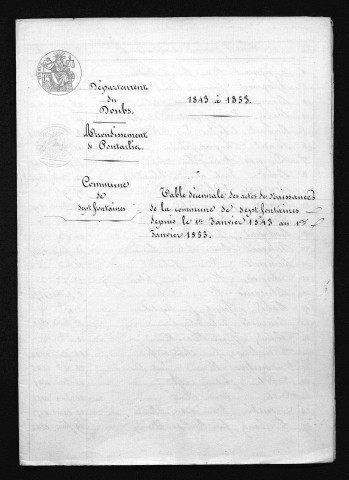 Département
du
Doubs.
1843 à 1853.
Arrondissement
de Pontarlier.
Commune
de
Septfontaines
Table décennale des actes de Naissances
de la commune de Septfontaines
depuis le 1er Janvier 1843 au 1er
Janvier 1853.